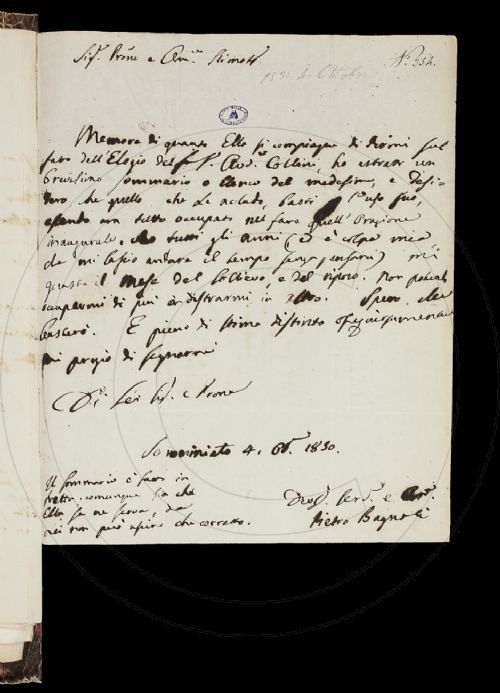 Sig.r Prone e Am.co Stimat.o
N.o 334.
1830. 4. Ottobre
Memore di quanto Ella si compiaque di dirmi sul
fatto dell'Elogio del P. Collini, ho estratto un
brevissimo sommario o elenco del medesimo, e desi-
dero che quello che Le accludo, basti l'uso suo,
essendo ora tutto occupato nel fare quell'Orazione
inaugurale, che tutti gli anni (ed è colpa mia
che mi lascio andare il tempo senza pensarci) mi
guasta il mese del sollievo, e del riposo. Non potendo
occuparmi di più o distrarmi in altro. Spero che
E pieno di stima distinta ossequiosamente
mi pregio di segnarmi
Di Lei Sig.r e Prone
Samminiato 4. Ott. 1830.
Il sommario è fatto in
fretta. comunque sia che
Ella se ne serva, da
Lei non può uscire che corretto.
Dev.o Serv.e e Am.
Pietro Bagnoli